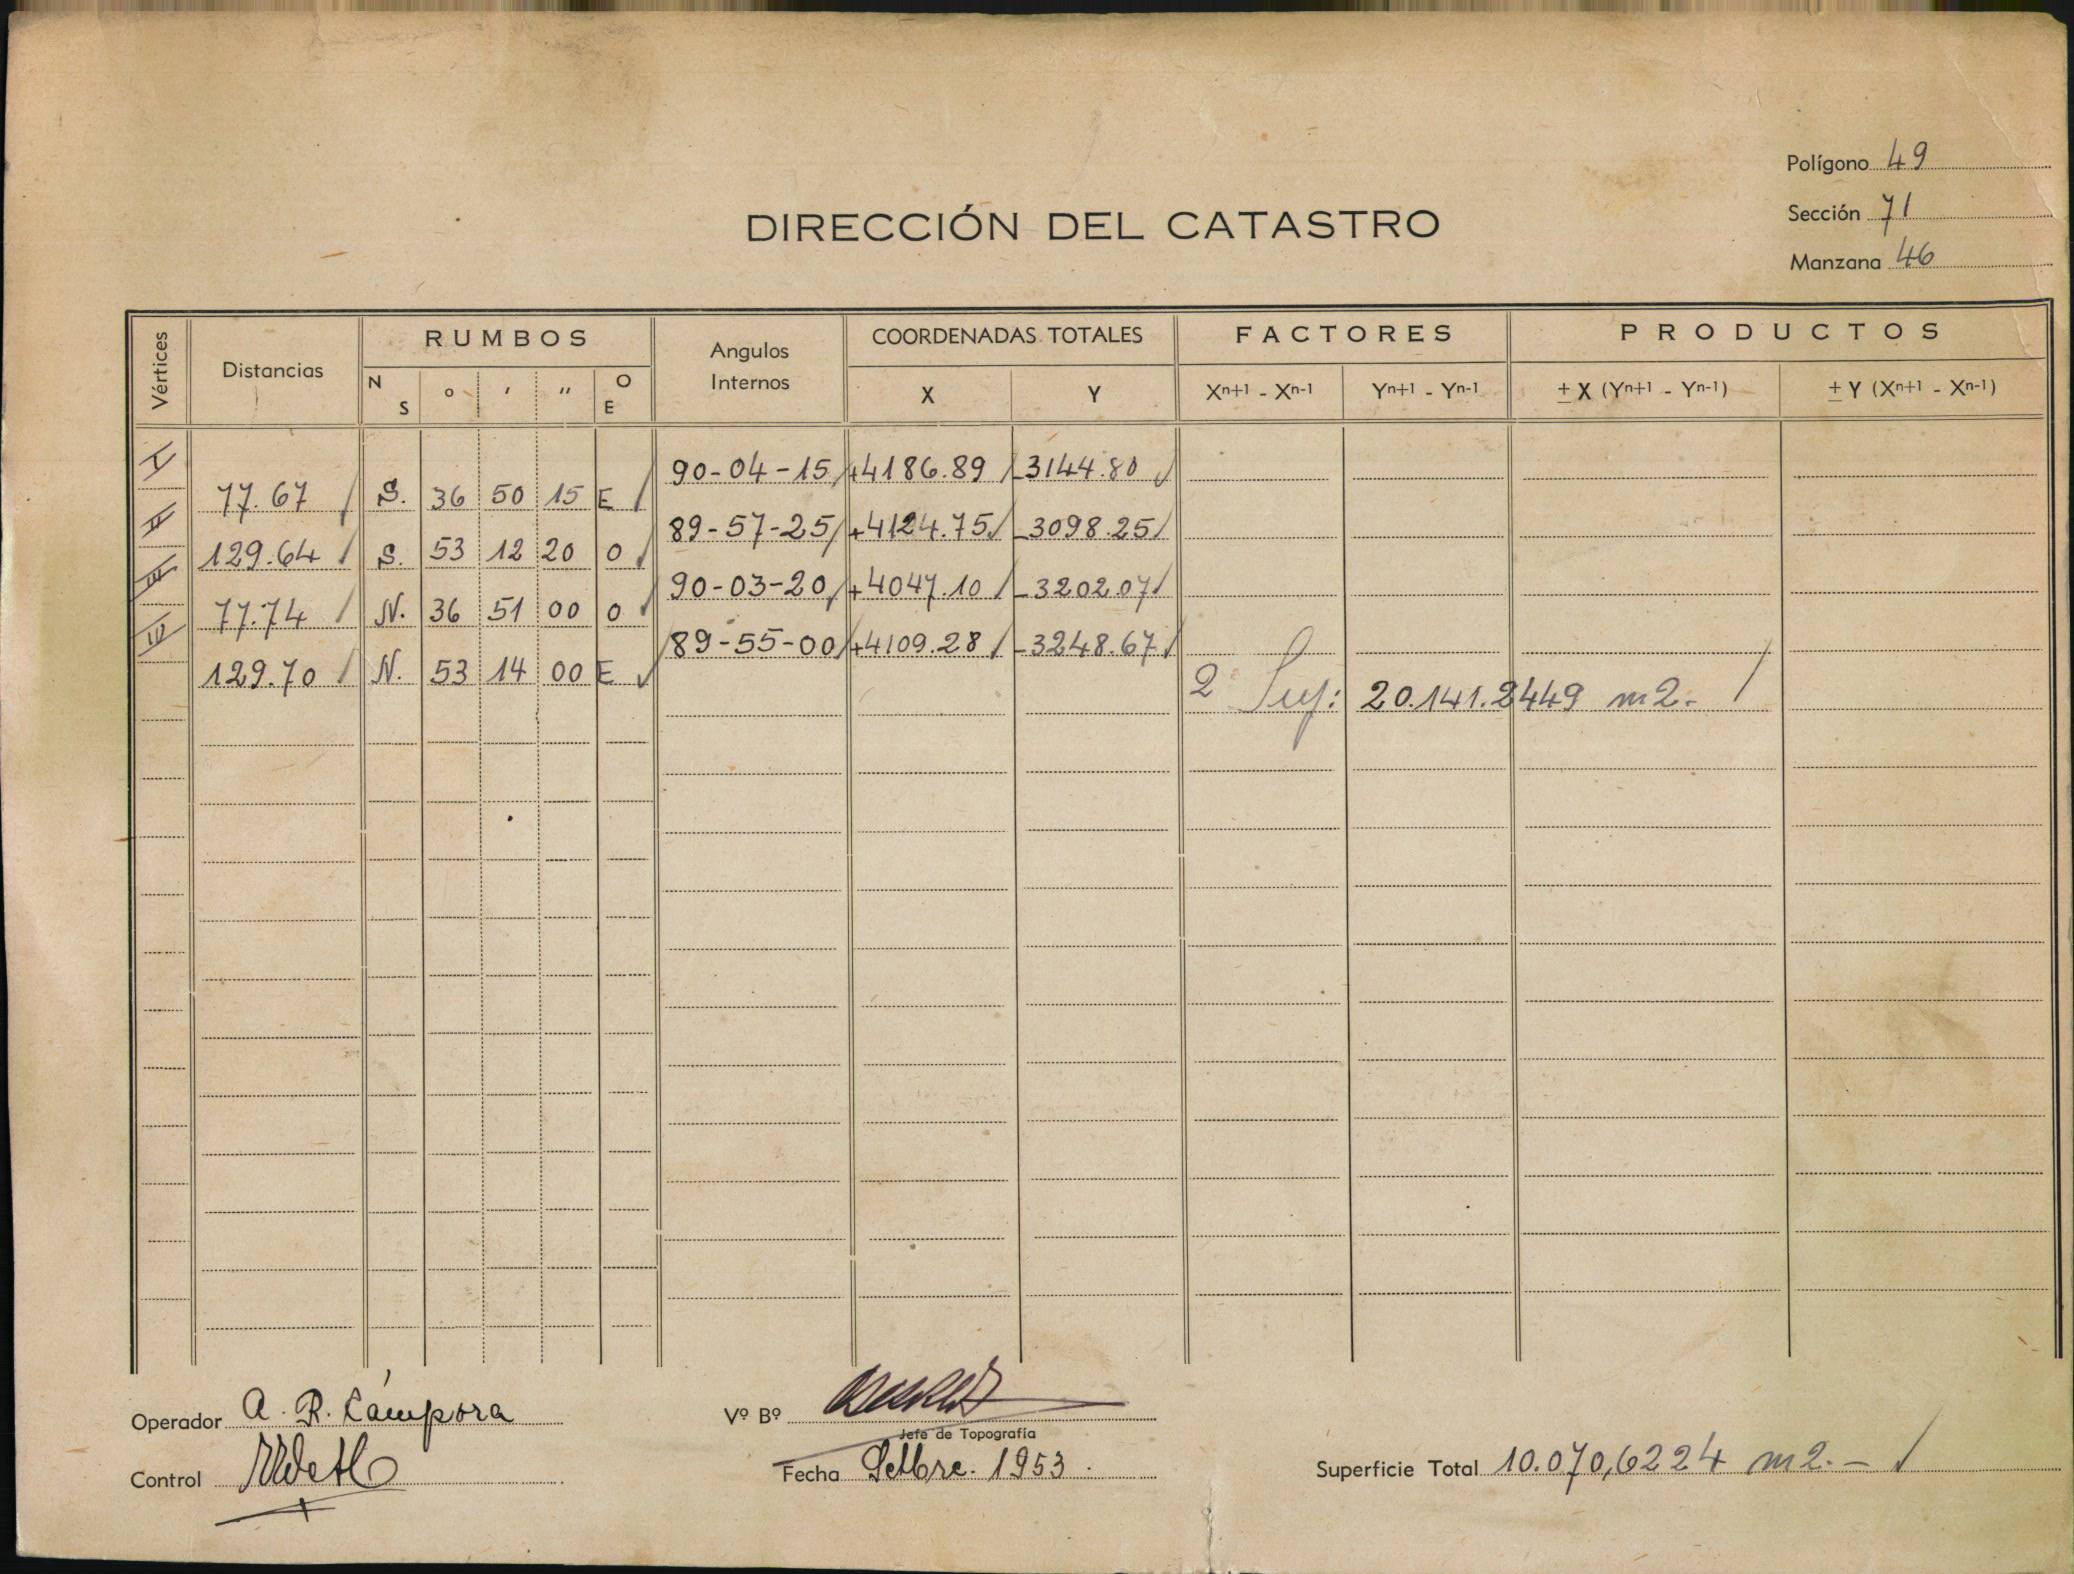 Polígono 49
DIRECCIÓN DEL CATASTRO
Sección 71
Manzana 46
Vértices Distancias RUMBOS Angulos Internos COORDENADAS TOTALES FACTORES PRODUCTOS
N S ° ′ ″ O E X Y Xn+1 - Xn-1 Yn+1 - Yn-1 ± X (Yn+1 - Yn-1) ± Y (Xn+1 - Xn-1)
I 90-04-15 +4186.89 -3144.80
77.67 S. 36 50 15 E
II 89-57-25 +4124.75 -3098.25
129.64 S. 53 12 20 O
III 90-03-20 +4047.10 -3202.07
77.74 N. 36 51 00 O
89-55-00 +4109.28 -3248.67
129.70 N. 53 14 00 E
2 Sup: 20.141.2449 m2.-
Operador A. R. Cámpora
Vº Bº
Jefe de Topografía
Control
Fecha Setbre. 1953.
Superficie Total 10.070,6224 m2.-